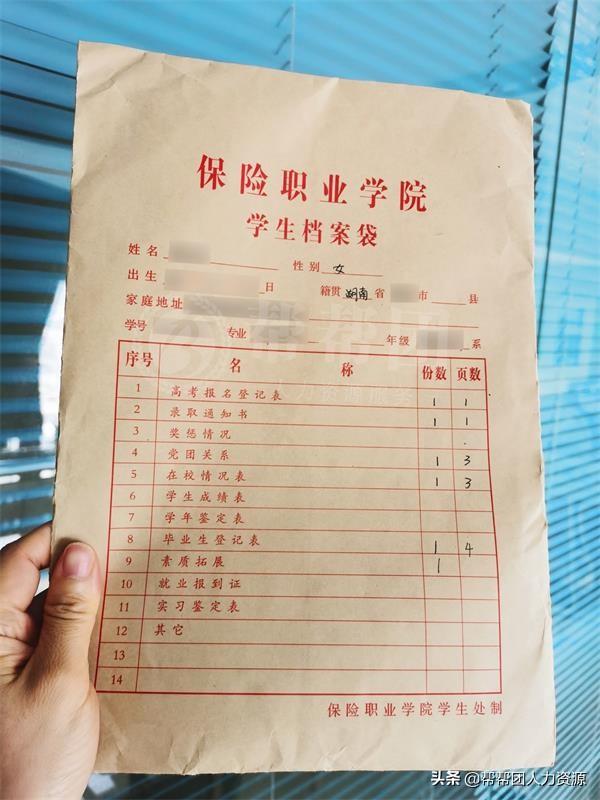 保险职业学院
学生档案袋
姓名 性别 女
出生 日 籍贯 湖南 省 市 县
家庭地址
学号 专业 年级 系
序号 名称 份数 页数
1 高考报名登记表 1 1
2 录取通知书 1 1
3 奖惩情况
4 党团关系 1 3
5 在校情况表 1 3
6 学生成绩表
7 学年鉴定表
8 毕业生登记表 1 4
9 素质拓展 1
10 就业报到证
11 实习鉴定表
12 其它
13
14
保险职业学院学生处制
头条 @帮帮团人力资源